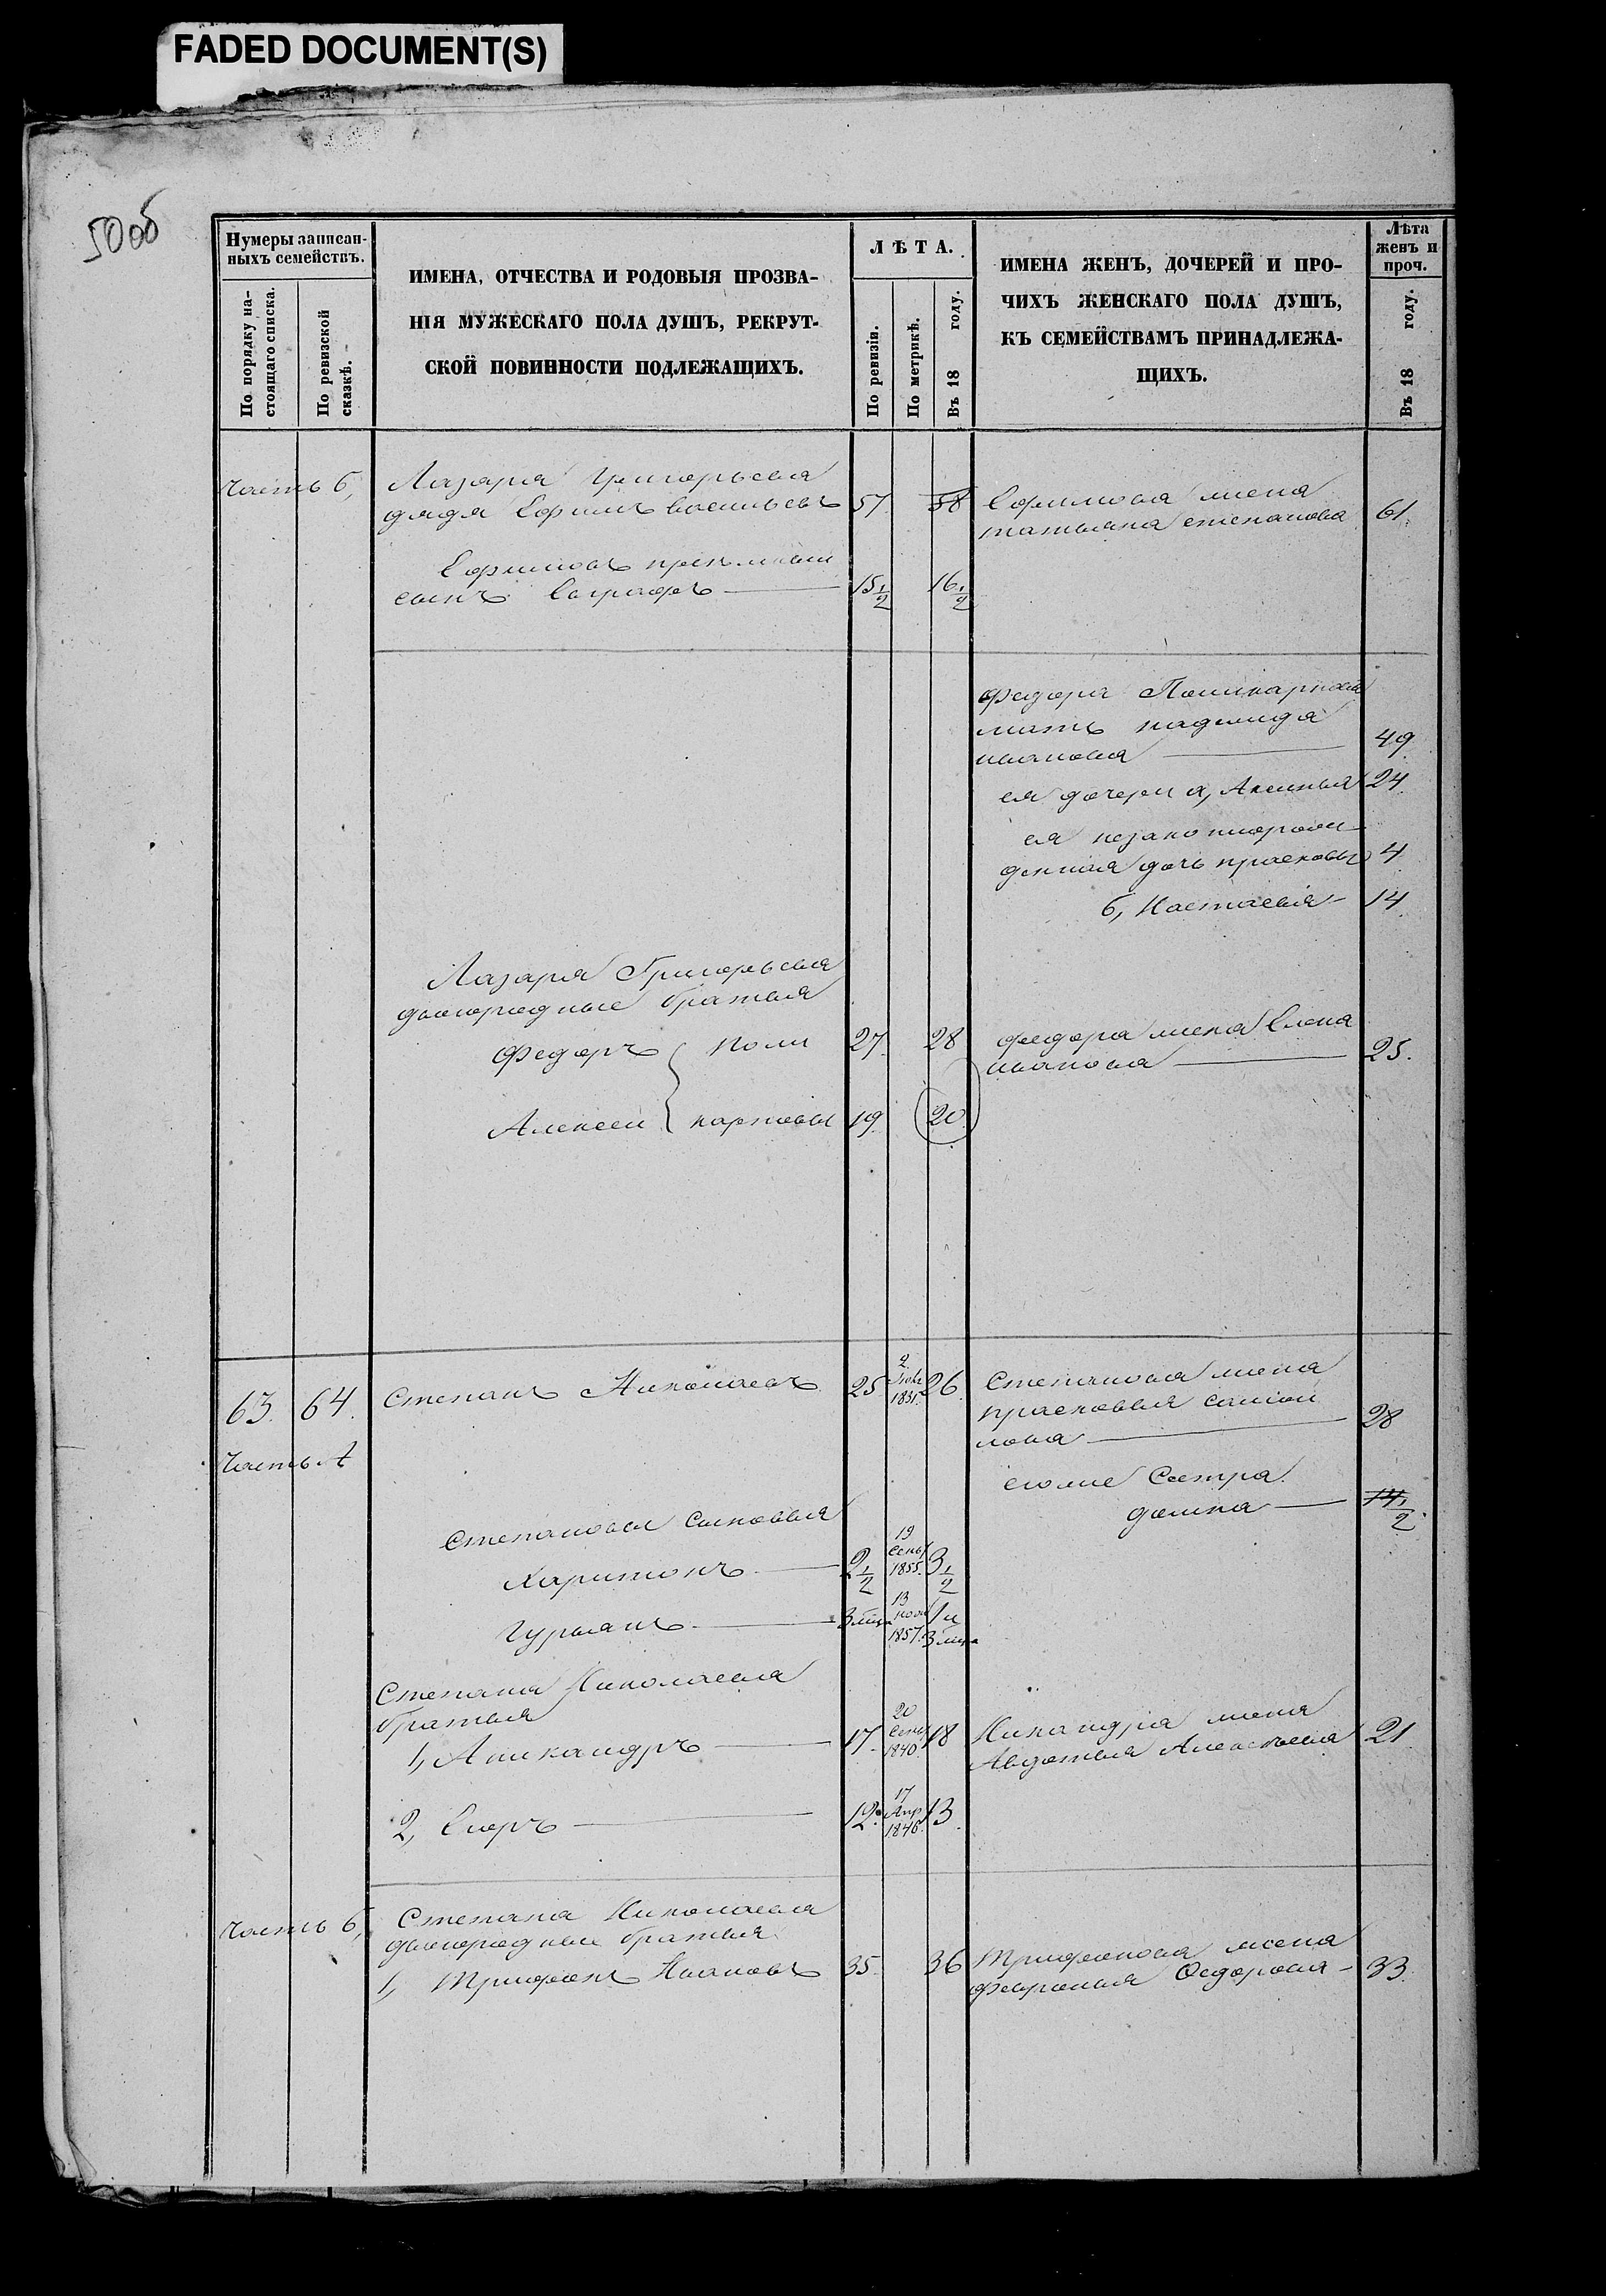 FADED DOCUMENT(S)
50об
Нумеры записан-
ныхъ семействъ.
По порядку на-
стоящаго списка.
По ревизской
сказкѣ.
ИМЕНА, ОТЧЕСТВА И РОДОВЫЯ ПРОЗВА-
НІЯ МУЖЕСКАГО ПОЛА ДУШЪ, РЕКРУТ-
СКОЙ ПОВИННОСТИ ПОДЛЕЖАЩИХЪ.
ЛѢТА.
По ревизіи.
По метрикѣ.
Въ 18 году.
ИМЕНА ЖЕНЪ, ДОЧЕРЕЙ И ПРО-
ЧИХЪ ЖЕНСКАГО ПОЛА ДУШЪ,
КЪ СЕМЕЙСТВАМЪ ПРИНАДЛЕЖА-
ЩИХЪ.
Лѣта
женъ и
проч.
Въ 18 году.
Часть б,
Лазаря Григорьева
дядя Ефимъ Васильевъ 57. 58
Ефимова жена
татьяна степанова 61.
Ефимовъ
сынъ Евграфъ 15 1/2 16 1/2
Федора Поликарпова
мать надежда
иванова 49.
ея дочери а, Аксинья 24.
ея незаконнорож
денная дочь прасковья 4.
б, Настасья 14.
Лазаря Григорьева
двоюродные братья
Федоръ Поли 27. 28
Алексей карповы 19. 20.
федора жена Елена
иванова 25.
63. 64. Степанъ Николаевъ 25. 2 1831. 26.
Часть А
Степанова жена
прасковья самой
лова 28
его же Сестра
домна 14 1/2.
Степановы сыновья
Харитонъ 2 1/2 19 Сент 1855. 3 1/2
Гурьянъ 3 мца 13 ноя 1857. 1 и 3 мца
Степана Николаева
братья
1, Аникандръ 17. 20 Сент 1840. 18
Никандра жена
Авдотья Алексѣева 21.
2, Егоръ 12. 17 Апр 1846. 13.
Часть б,
Степана Николаева
двоюродные братья
1, Трифонъ Ивановъ 35. 36
Трифонова жена
февронья Федорова 33.